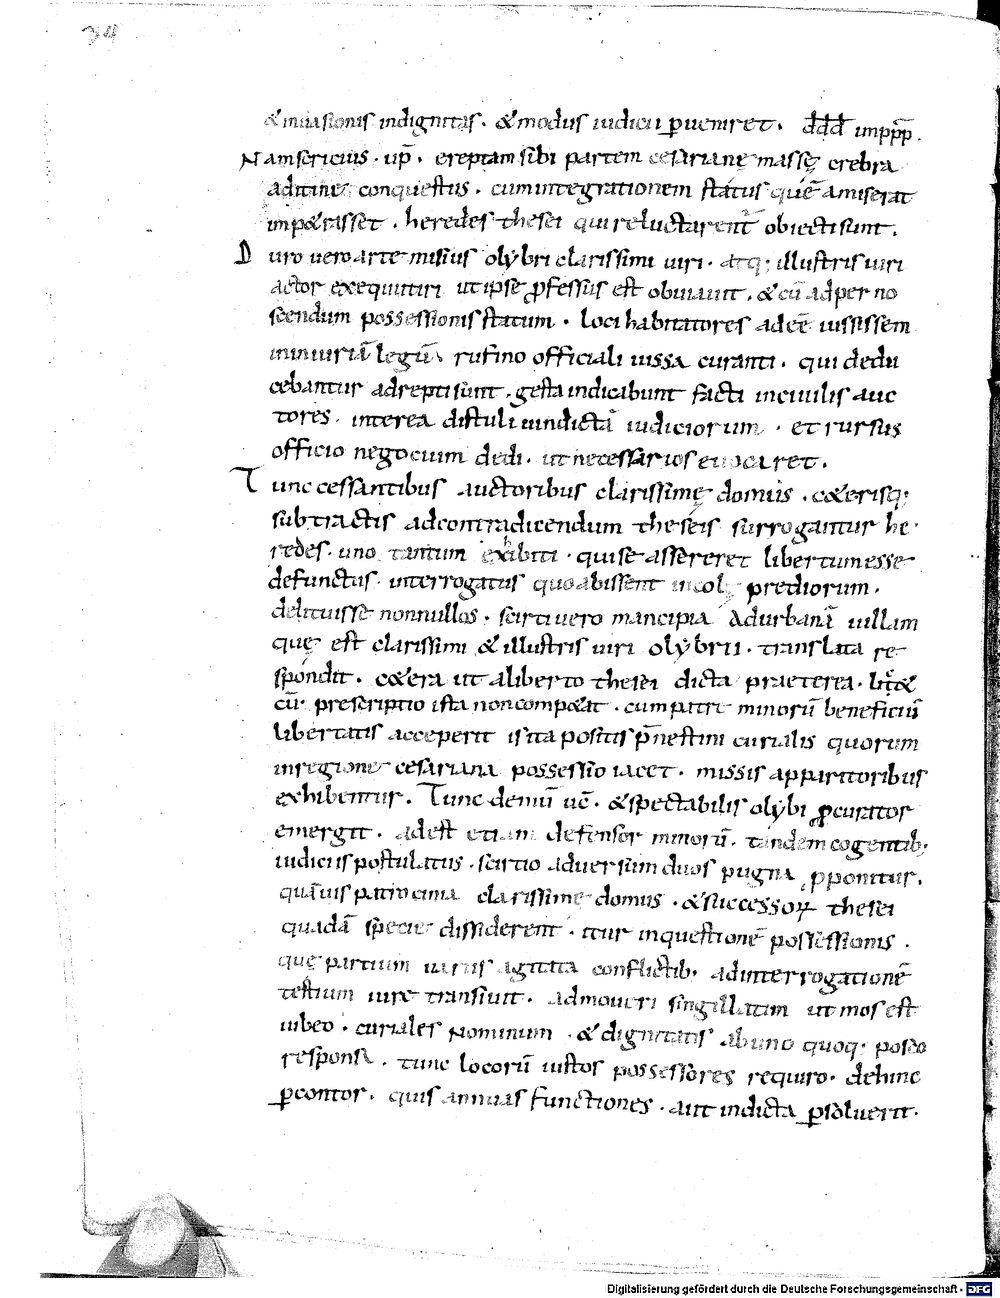 34
& inuasionis indignitas. & modus iudicii ꝑueniret. ddd imppp̄.
Nam sericius. up̄. ereptam sibi partem cesarianę massę crebra
aditione conquestus. cum integrationem status quē amiserat
imp&rasset. heredes thesei qui reluctarent̄ obiecti sunt.
Duro uero arte missus olybri clarissimi uiri. atq; illustris uiri
actor exequutiri ut ipse ꝓfessus est obuiauit. & cū ad perno
scendum possessionis statum. loci habitatores adeē iussissem
in iniuriā legū rufino officiali iussa curanti. qui dedu
cebantur adrepti sunt. gesta indicabunt facti inciuilis auc
tores. interea distuli uindictā iudiciorum. et rursus
officio negocium dedi. ut necessarios euocaret.
Tunc cessantibus auctoribus clarissimę domus. c&erisq;
subtractis ad contradicendum theseis surrogantur he
redes. uno tantum exhibiti. qui se assereret libertum esse
defunctus. interrogatus quo abissent incolę prediorum.
delituisse nonnullos. scirti uero mancipia ad urbanā uillam
quę est clarissimi & illustris uiri olybrii. translata re
spondit. c&era ut a liberto thesei dicta praeterea. lic&
cū prescriptio ista non comp&at. cum patre minorū beneficiū
libertatis acceperit is ita positis p̄nestini curialis quorum
in regione cesariana possessio iacet. missis apparitoribus
exhibentur. Tunc demū uc̄. & spectabilis olybi ꝓcurator
emergit. adest etiam defensor minorū. tandem cogentib;
iudiciis postulatus. scirtio aduersum duos pugna ꝓponitur.
quāuis patrocinia clarissime domus. & successoꝝ thesei
quadā specie dissiderent. itur in questionē possessionis.
quę partium uariis agitata conflictib; ad interrogationē
testium iure transiuit. admoueri singillatim ut mos est
iubeo. curiales nominum. & dignitatis ab uno quoq; posco
responsa. tunc locorū iustos possessores requiro. dehinc
ꝑcontor. quis annuas functiones. aut indicta ꝑsoluerit.
Digitalisierung gefördert durch die Deutsche Forschungsgemeinschaft - DFG